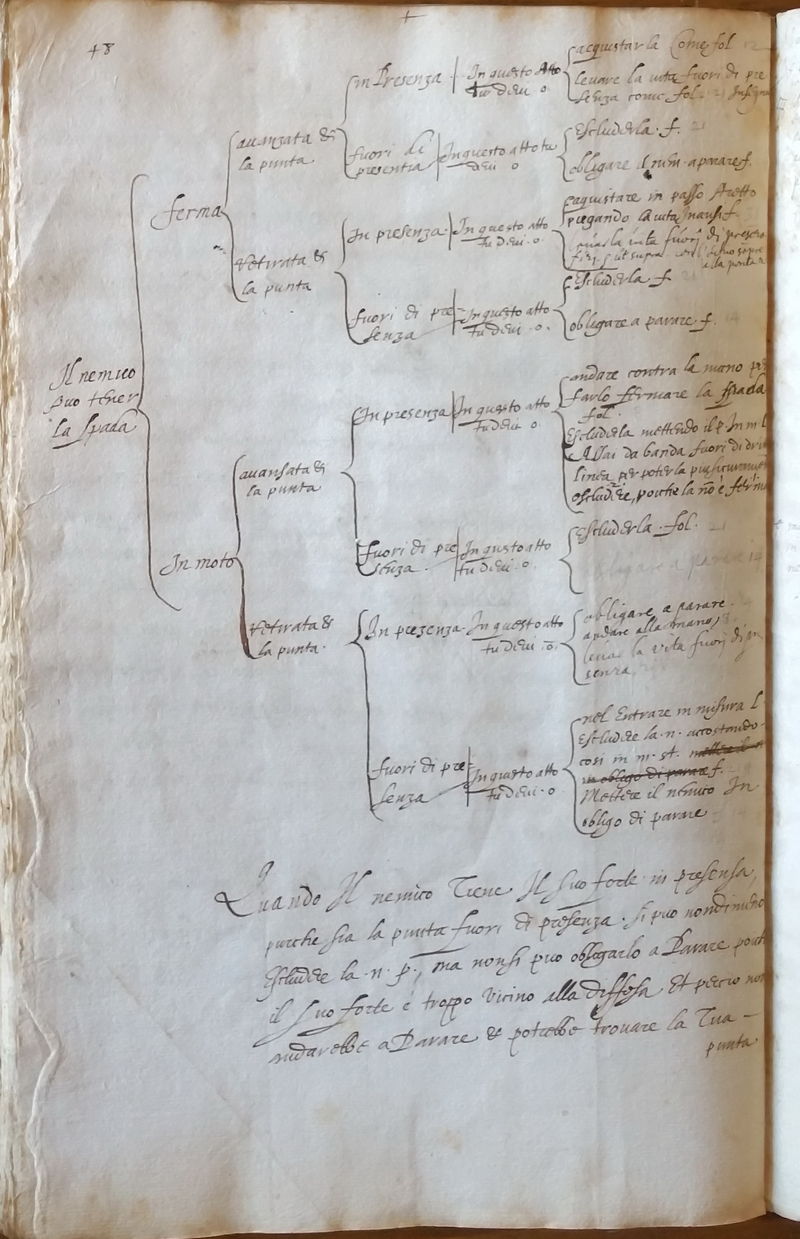 48
Il nemico
puo tener
la spada
ferma
avanzata &
la punta
in Presenza
In questo Atto
tu devi o
acquistarla Come fol
levare la vita fuori di pre
senza come fol.
fuori di
presentia
In questo atto tu
devi o
Escluderla f. 21
obligare il nem. a parare f.
retirata &
la punta
In presenza
In questo atto
tu devi o.
acquistare in passo stretto
piegando la vita f.
la vita fuori di
alla
fuori di pre
senza
In questo atto
tu devi o.
Escluderla f.
obligare a parare f.
In moto
avansata &
la punta
In presenza
In questo atto
tu devi o.
andare contra la mano per
farlo fermare la spada
fol.
Escluderla mettendo il p. In m.
Assai da banda fuori di
linea per poterla piu
escludere, poiche la no è
fuori di pre
senza.
In questo atto
tu devi o.
Escluderla fol. 21
obligare a parare 14
retirata &
la punta.
In presenza
In questo atto
tu devi o.
obligare a parare
andare alla mano
la vita fuori di
senza
fuori di pre
senza
In questo atto
tu devi o
nel Entrare in misura
Escludere la n. accostando
cosi in m. st.
in obligo di parare f.
Mettere il nemico In
obligo di parare
Quando Il nemico Tiene Il suo forte in presensa,
purche sia la punta fuori di presenza. si puo nondimeno
Escludere la n. p., ma nonsi puo obligarlo a Parare
il suo forte è troppo vicino alla diffesa Et percio non
andarebbe a Parare & potrebbe trovare la Tua -
punta